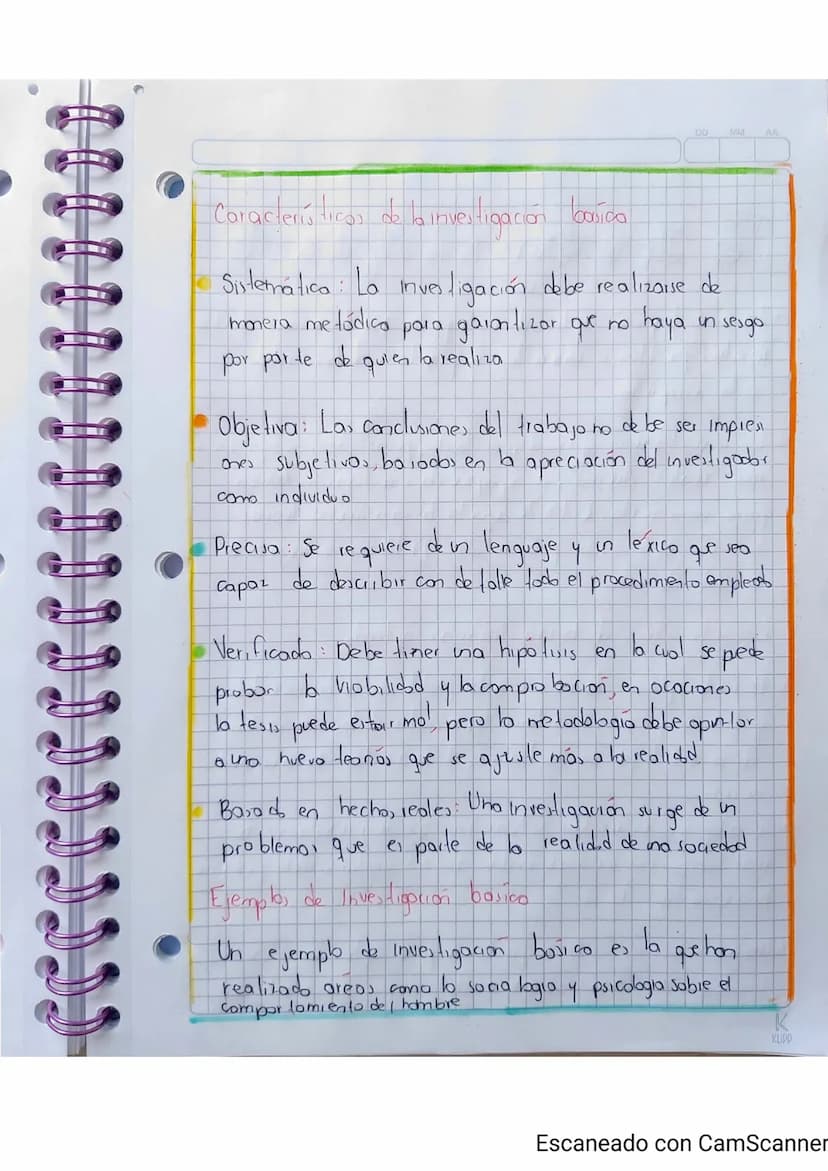 DD MM AA
Características de la investigación basica
Sistemática: La investigación debe realizarse de
manera metódica para garantizar que no haya un sesgo
por parte de quien la realiza
Objetiva: Las conclusiones del trabajo no debe ser impresi
ones subjetivas, basados en la apreciación del investigador
como individuo
Precisa: Se requiere de un lenguaje y un léxico que sea
capaz de describir con detalle todo el procedimiento empleado
Verificado: Debe tener una hipótesis en la cual se pede
probar la viabilidad y la comprobación, en ocaciones
la tesis puede estar mal, pero la metodología debe apuntar
a una nuevo teorías que se ajuste más a la realidad
Basado en hechos reales: Una investigación surge de un
problemas que es parte de la realidad de una sociedad
Ejemplos de investigación basica
Un ejemplo de investigación basica es la que han
realizado areas como la sociología y psicología sobre el
comportamiento del hombre
K
KLIPP
Escaneado con CamScanner